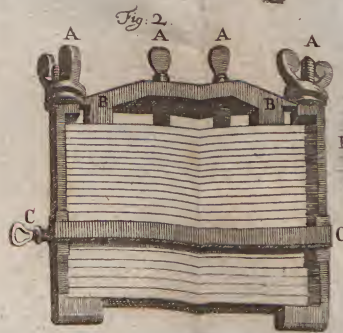 Fig: 2.
A A A A
B B
C C